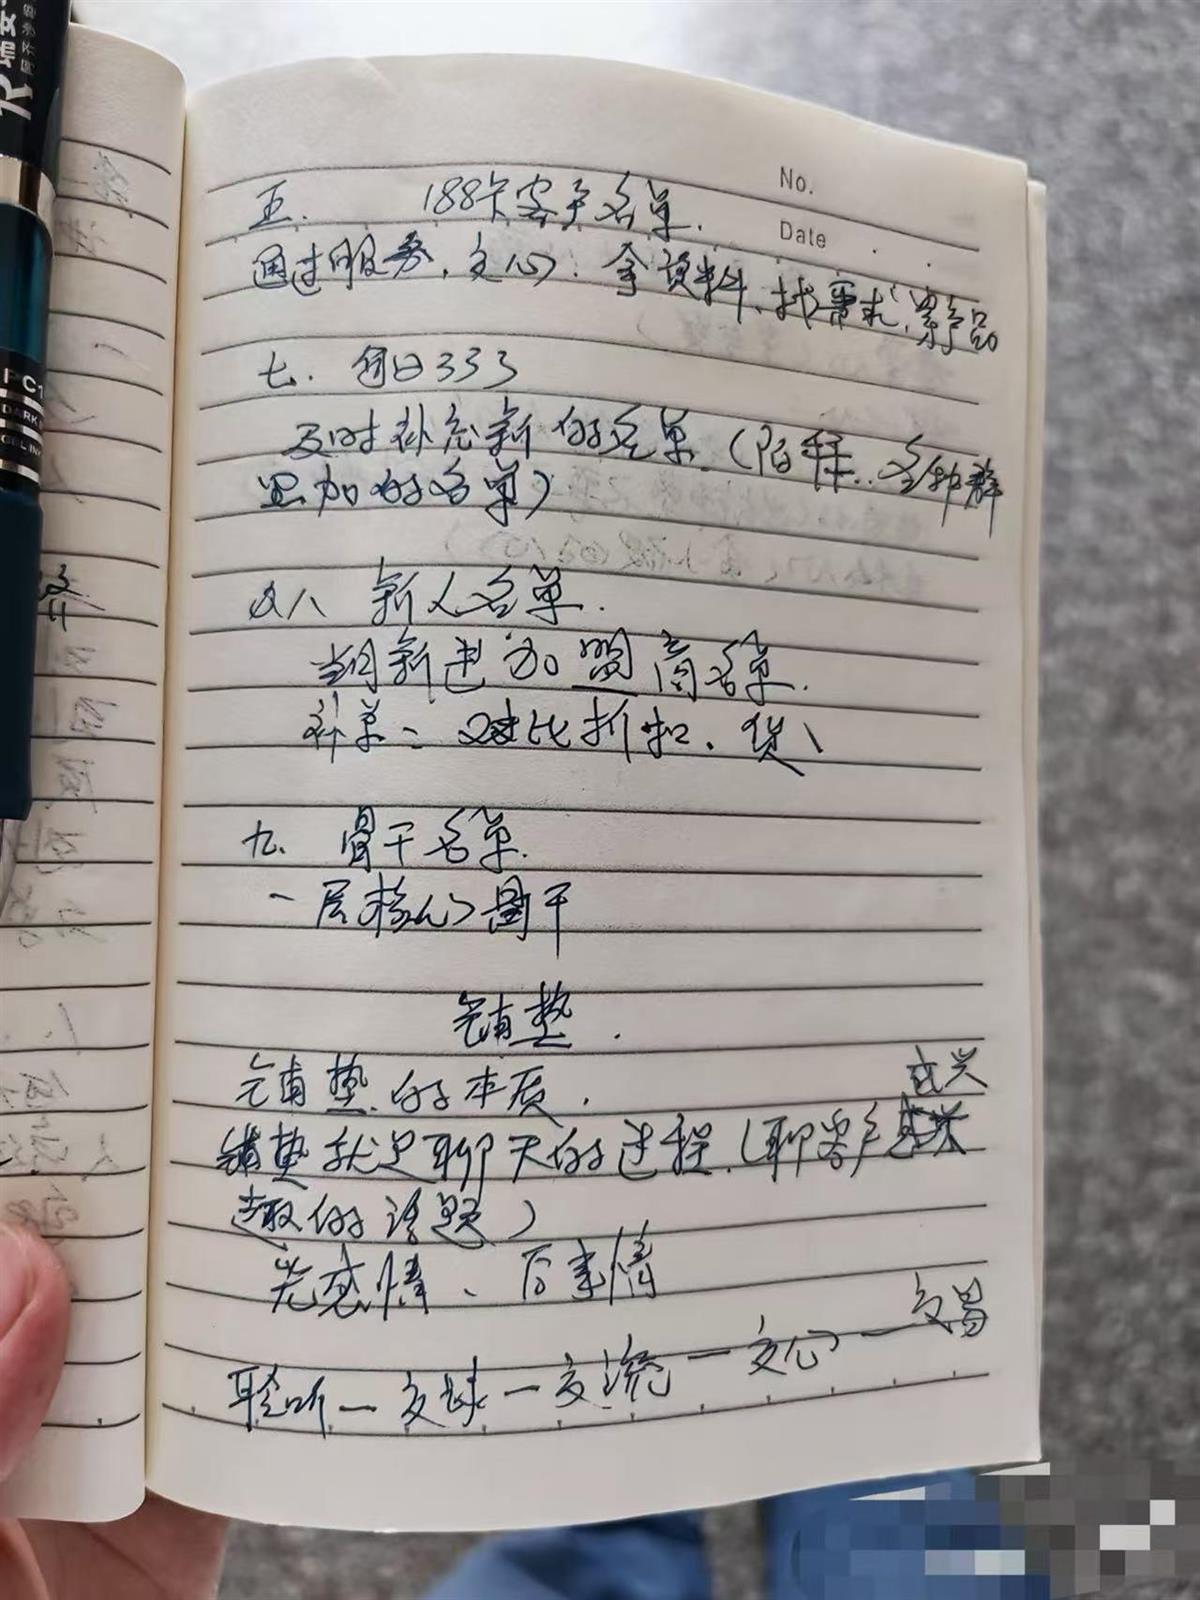 No.
Date
五. 188卡客户名单.
通过服务,交心,拿资料、找需求,累产品
七. 每日333
及时补充新的名单(陌拜、各种群
里加的名单)
八 新人名单.
当月新进加盟商名单.
补单:对比折扣、货
九. 骨干名单.
一层核心骨干
铺垫.
铺垫的本质.
感兴
铺垫就是聊天的过程.(聊客户
趣的话题)
先感情、后事情
聆听—交球—交流—交心—交易
PC1
DARK
GEL INK